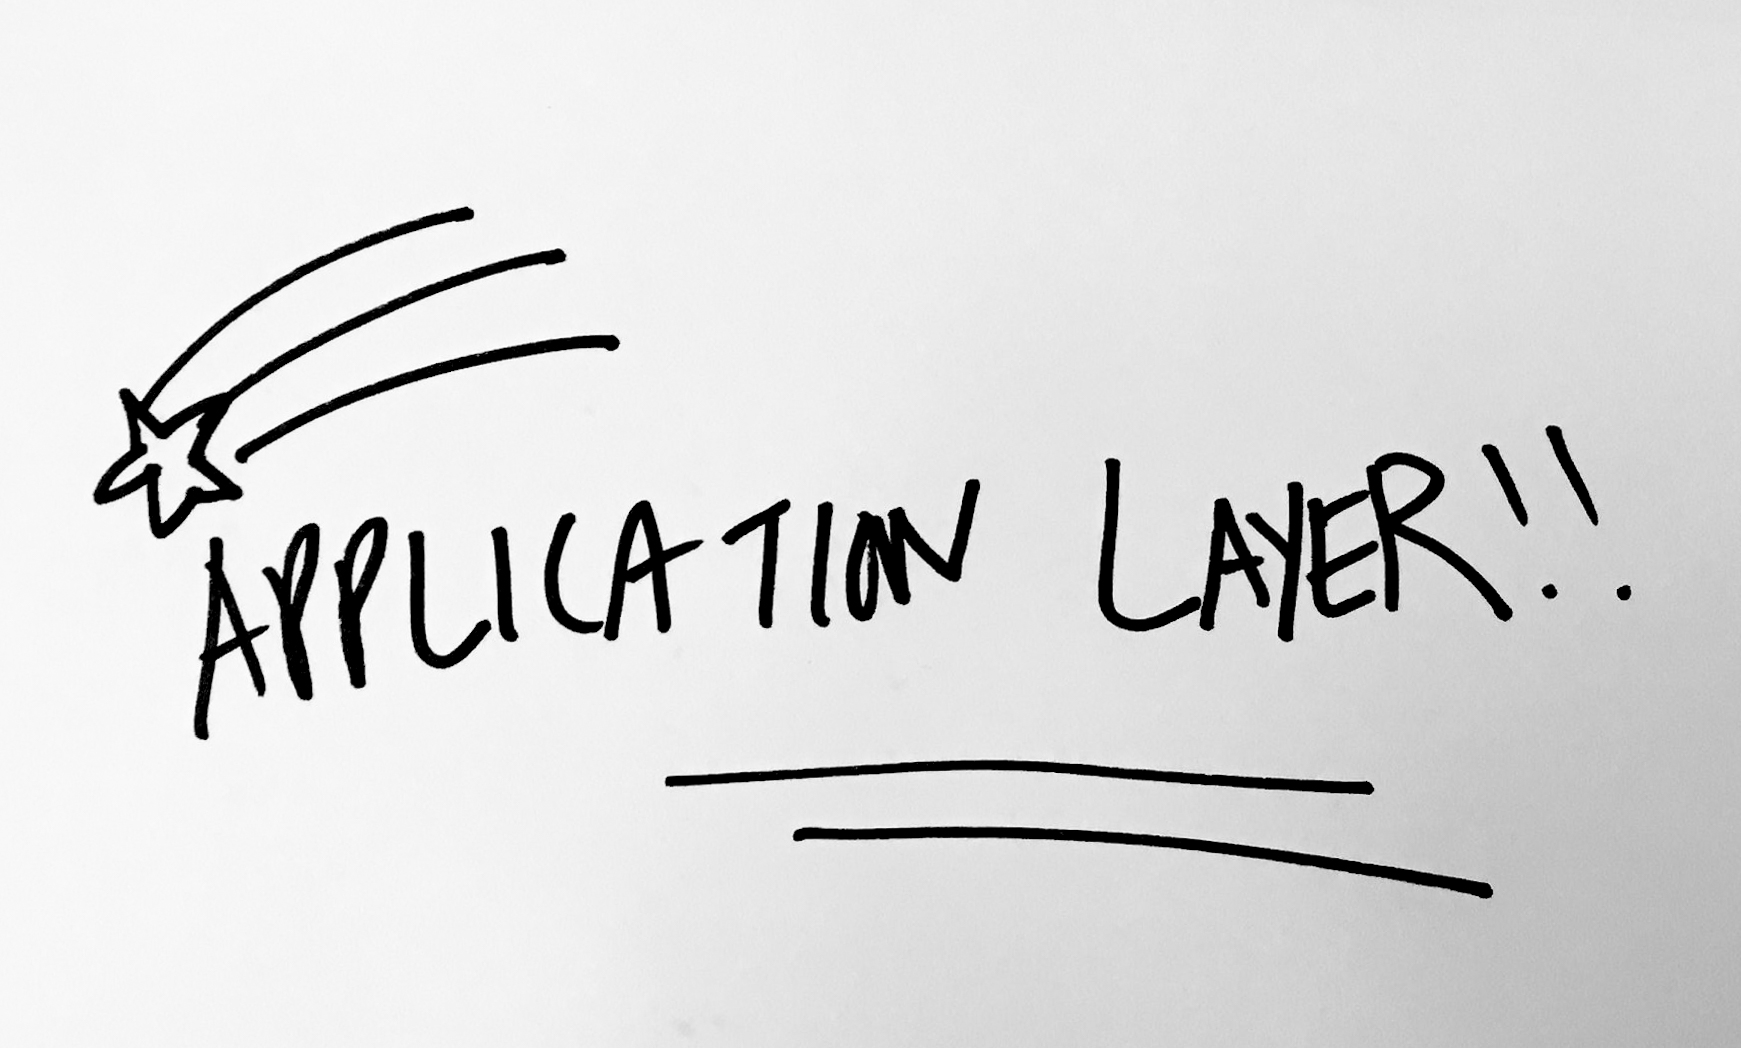 APPLICATION LAYER!!